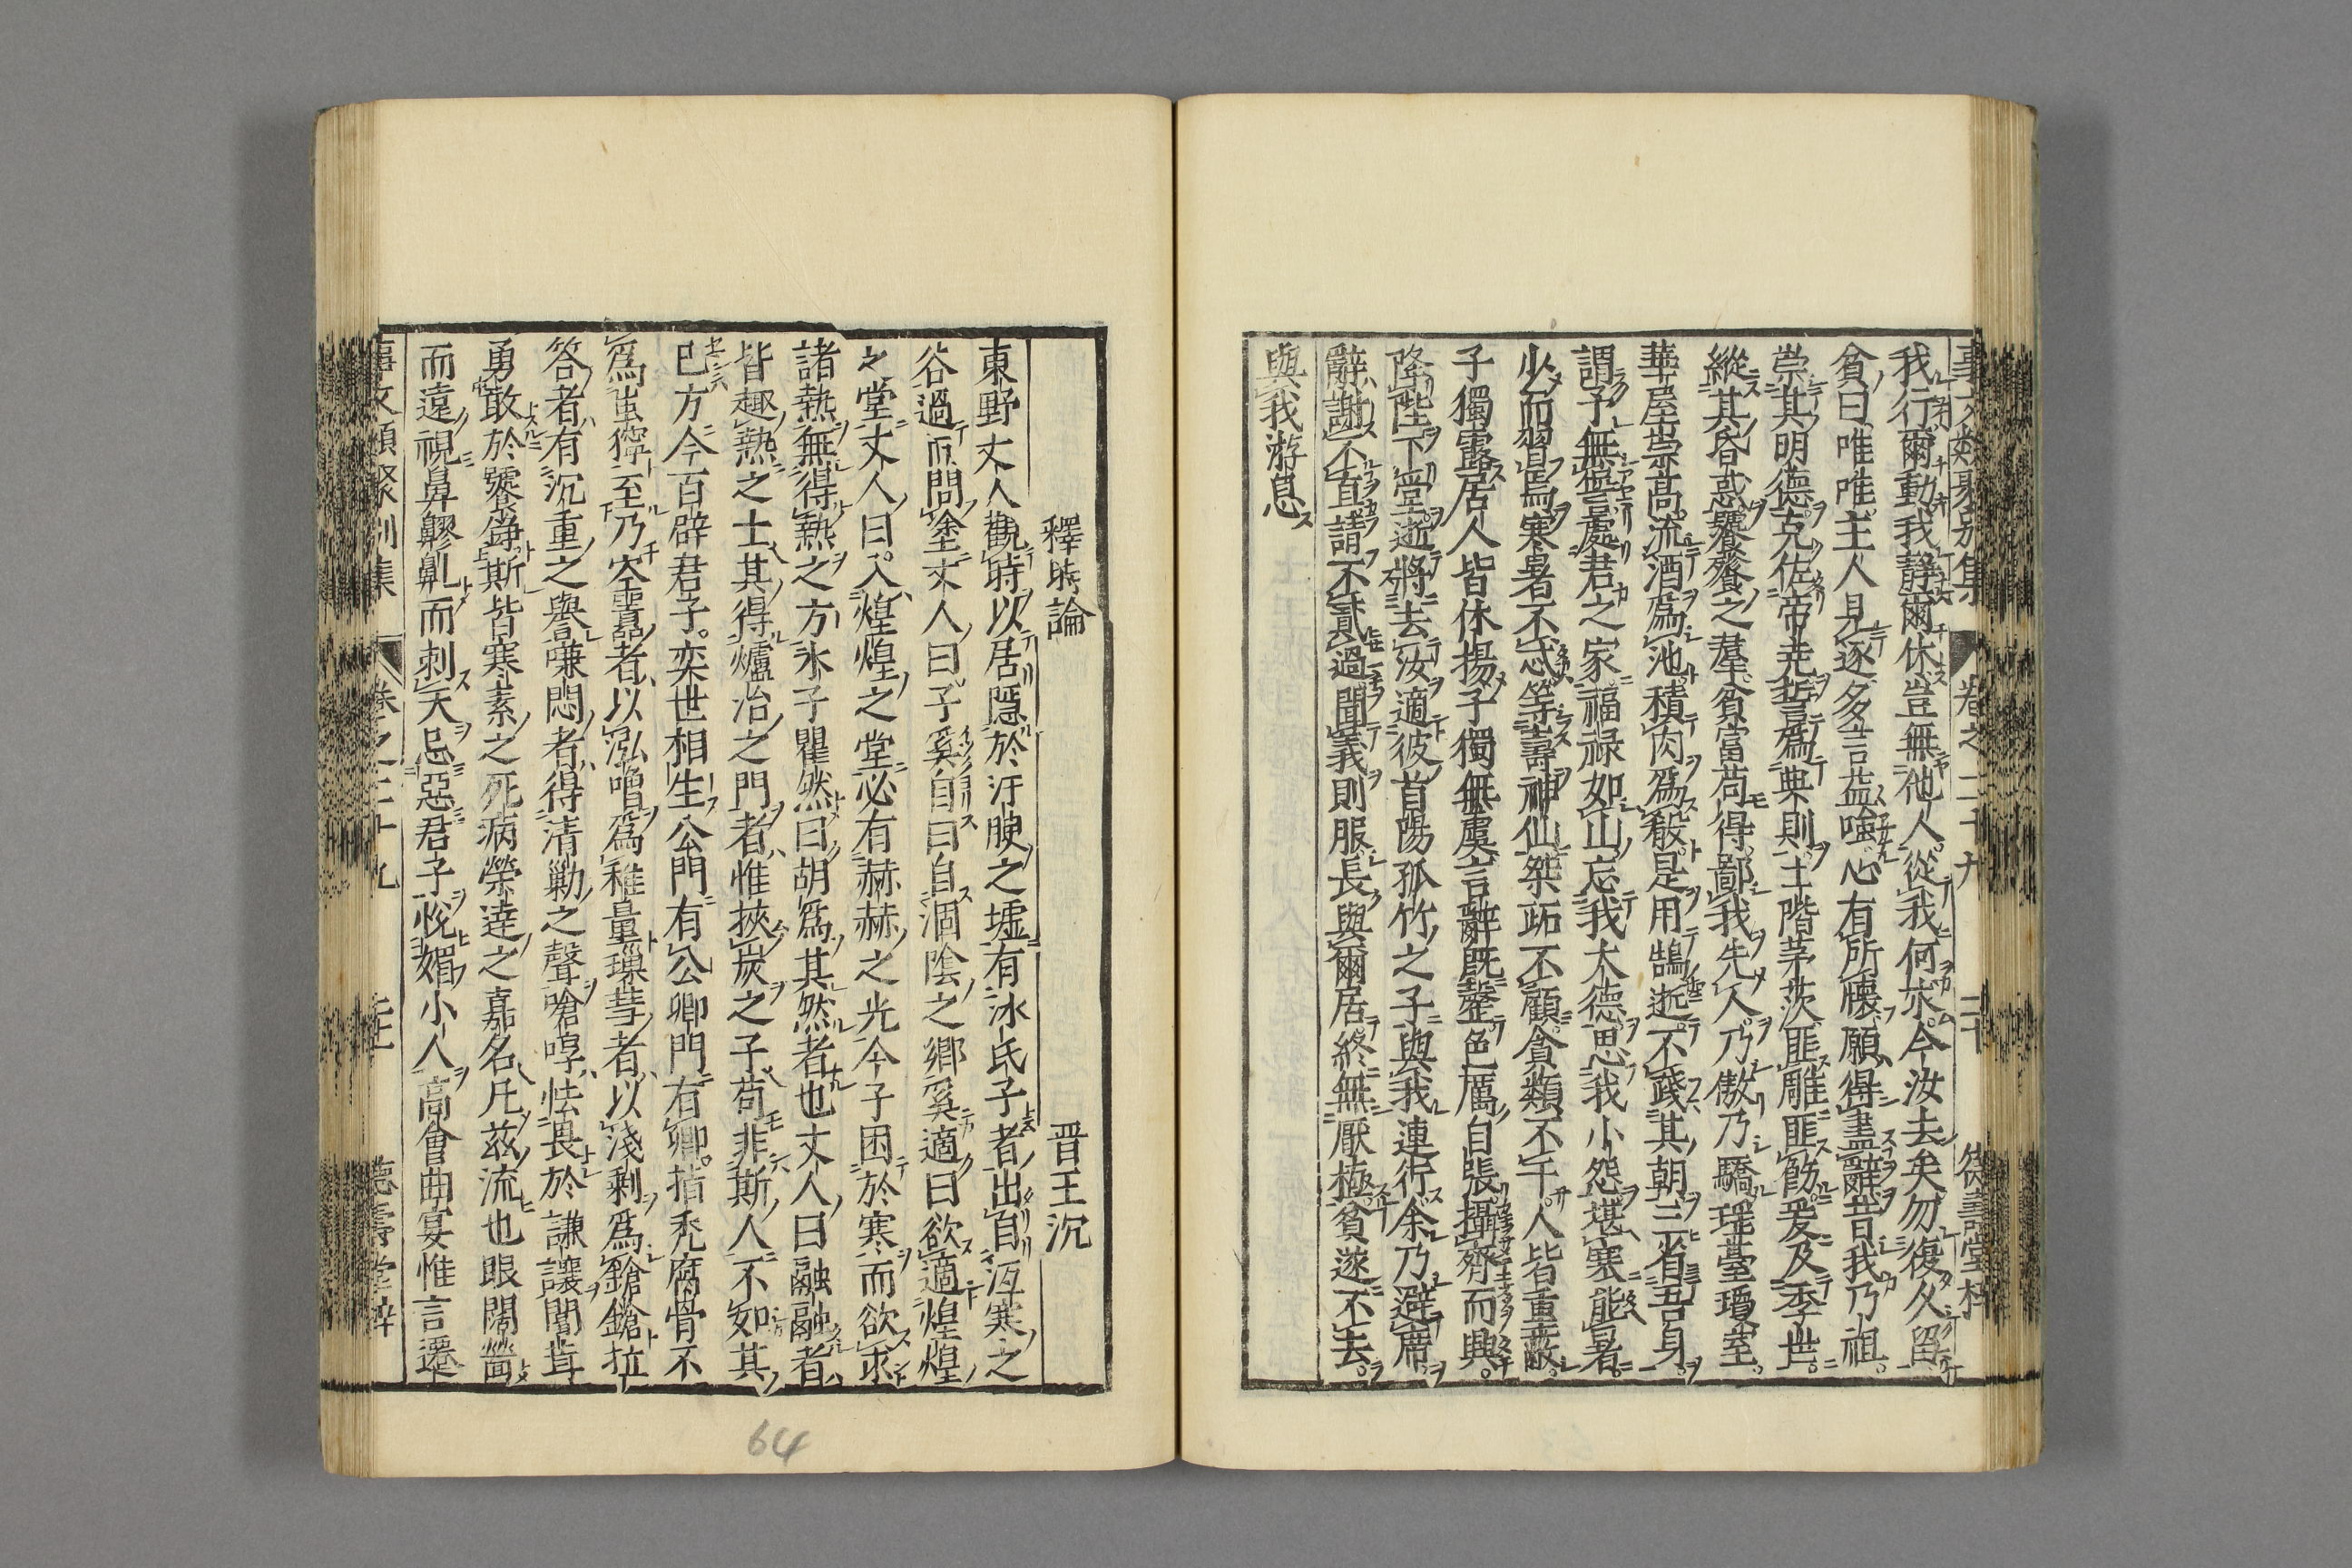 我行爾動我靜爾休豈無他人從我何求今汝去矣勿復久留
貧曰唯唯主人見逐多言益嗤心有所懷願得盡辭昔我乃祖
崇其明德克佐帝堯誓爲典則土階茅茨匪雕匪飾爰及季世
縱其昏惑饕餮之羣貧富苟得鄙我先人乃傲乃驕瑤臺瓊室
華屋崇高流酒爲池積肉爲殽是用鵠逝不踐其朝三省吾身
謂予無諐處君之家福祿如山忘我大德思我小怨堪寒能暑
少而習焉寒暑不忒等壽神仙桀跖不顧貪類不干人皆重蔽
子獨露居人皆怵惕子獨無虞言辭既罄色厲目張攝齊而興
降陛下堂逝將去汝適彼首陽孤竹之子與我連行余乃避席
辭謝不直請不貳過聞義則服長與爾居終無厭極貧遂不去
與我游息
釋時論　晋王沉
東野丈人觀時以居隱於汙腴之墟有冰氏子者出自沍寒之
谷過而問塗丈人曰子奚自曰自涸陰之鄉奚適曰欲適煌煌
之堂丈人曰入煌煌之堂必有赫赫之光今子困於寒而欲求
諸熱無得熱之方氷子瞿然曰胡爲其然者也丈人曰融融者
皆趣熱之士其得爐冶之門者惟挾炭之子苟非斯人不如其
已方今百辟君子奕世相生公門有公卿門有卿指禿腐骨不
答者有沉重之譽嗛悶者得清勦之聲嗆哼怯畏於謙讓闒茸
勇敢於饕諍斯皆寒素之死病榮達之嘉名凡茲流也眼闊嗇
而遠視鼻齆鼽而刺天忌惡君子悅媚小人高會曲宴惟言遷
卷之二十九